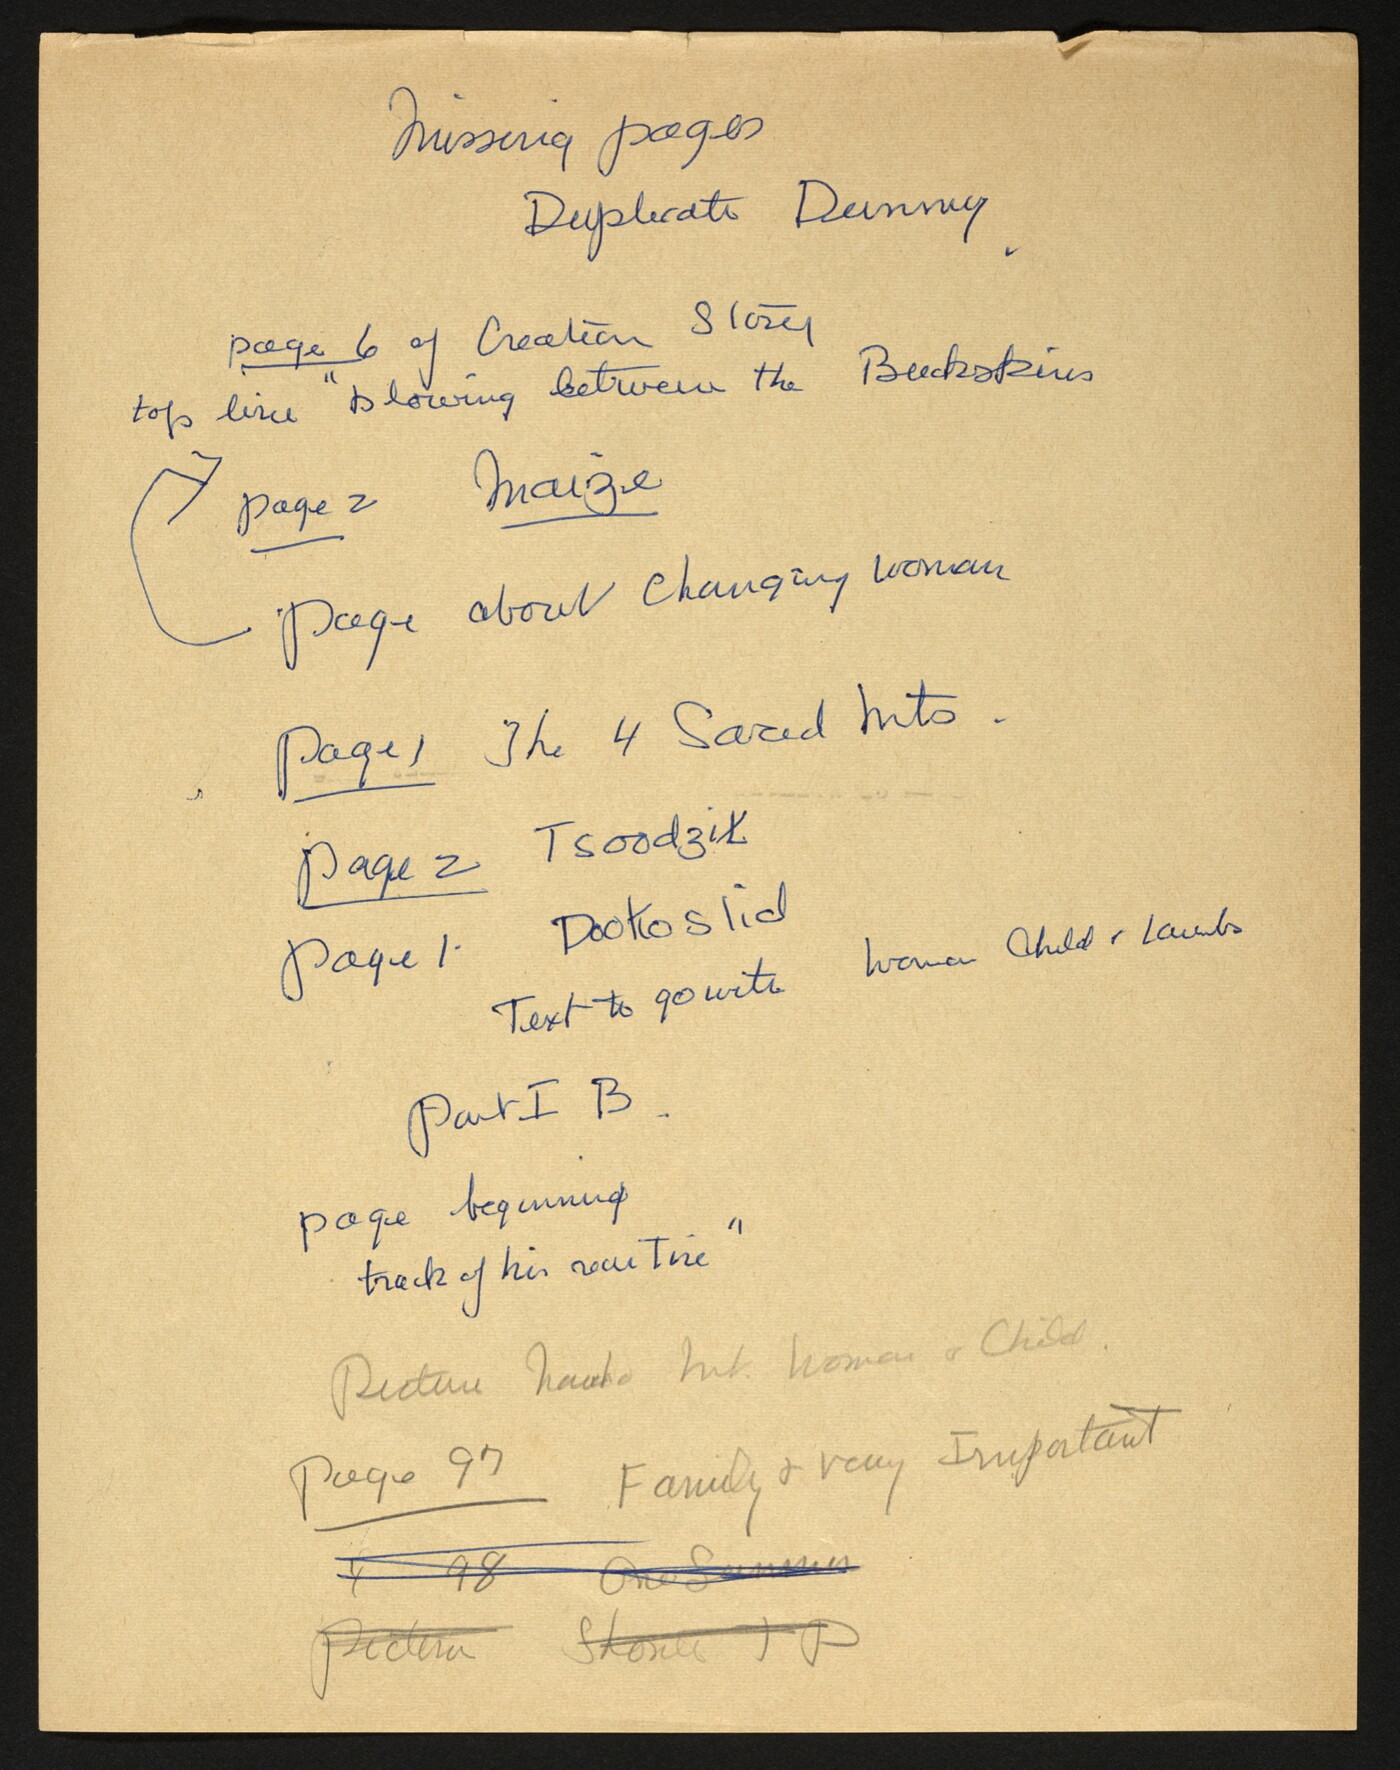 Missing pages
Duplicate Dummy
page 6 of Creation Story
top line "blowing between the Buckskins
page 2 Maize
page about Changing Woman
page 1 The 4 Sacred Mts.
page 2 Tsoodzil
page 1. Dookoslid
Text to go with Woman Child & Lambs
Part I B.
page beginning
track of his routine"
Picture Mt. Woman & Child.
page 97 Family & very Important
98 One Summer
Picture